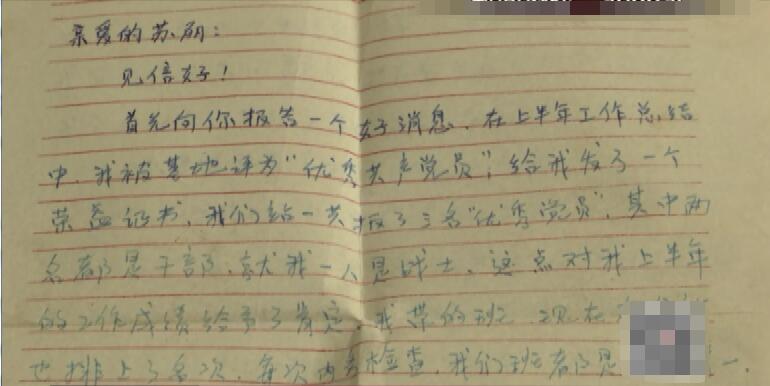 亲爱的苏丽：
见信好！
首先向你报告一个好消息，在上半年工作总结
中，我被基地评为"优秀共产党员"，给我发了一个
荣益证书，我们站一共报了三名"优秀党员"，其中两
名都是干部，就我一人是战士，这点对我上半年
的工作成绩给予了肯定，我带的班，现在
也排上了名次，每次内务检查，我们班都是一，